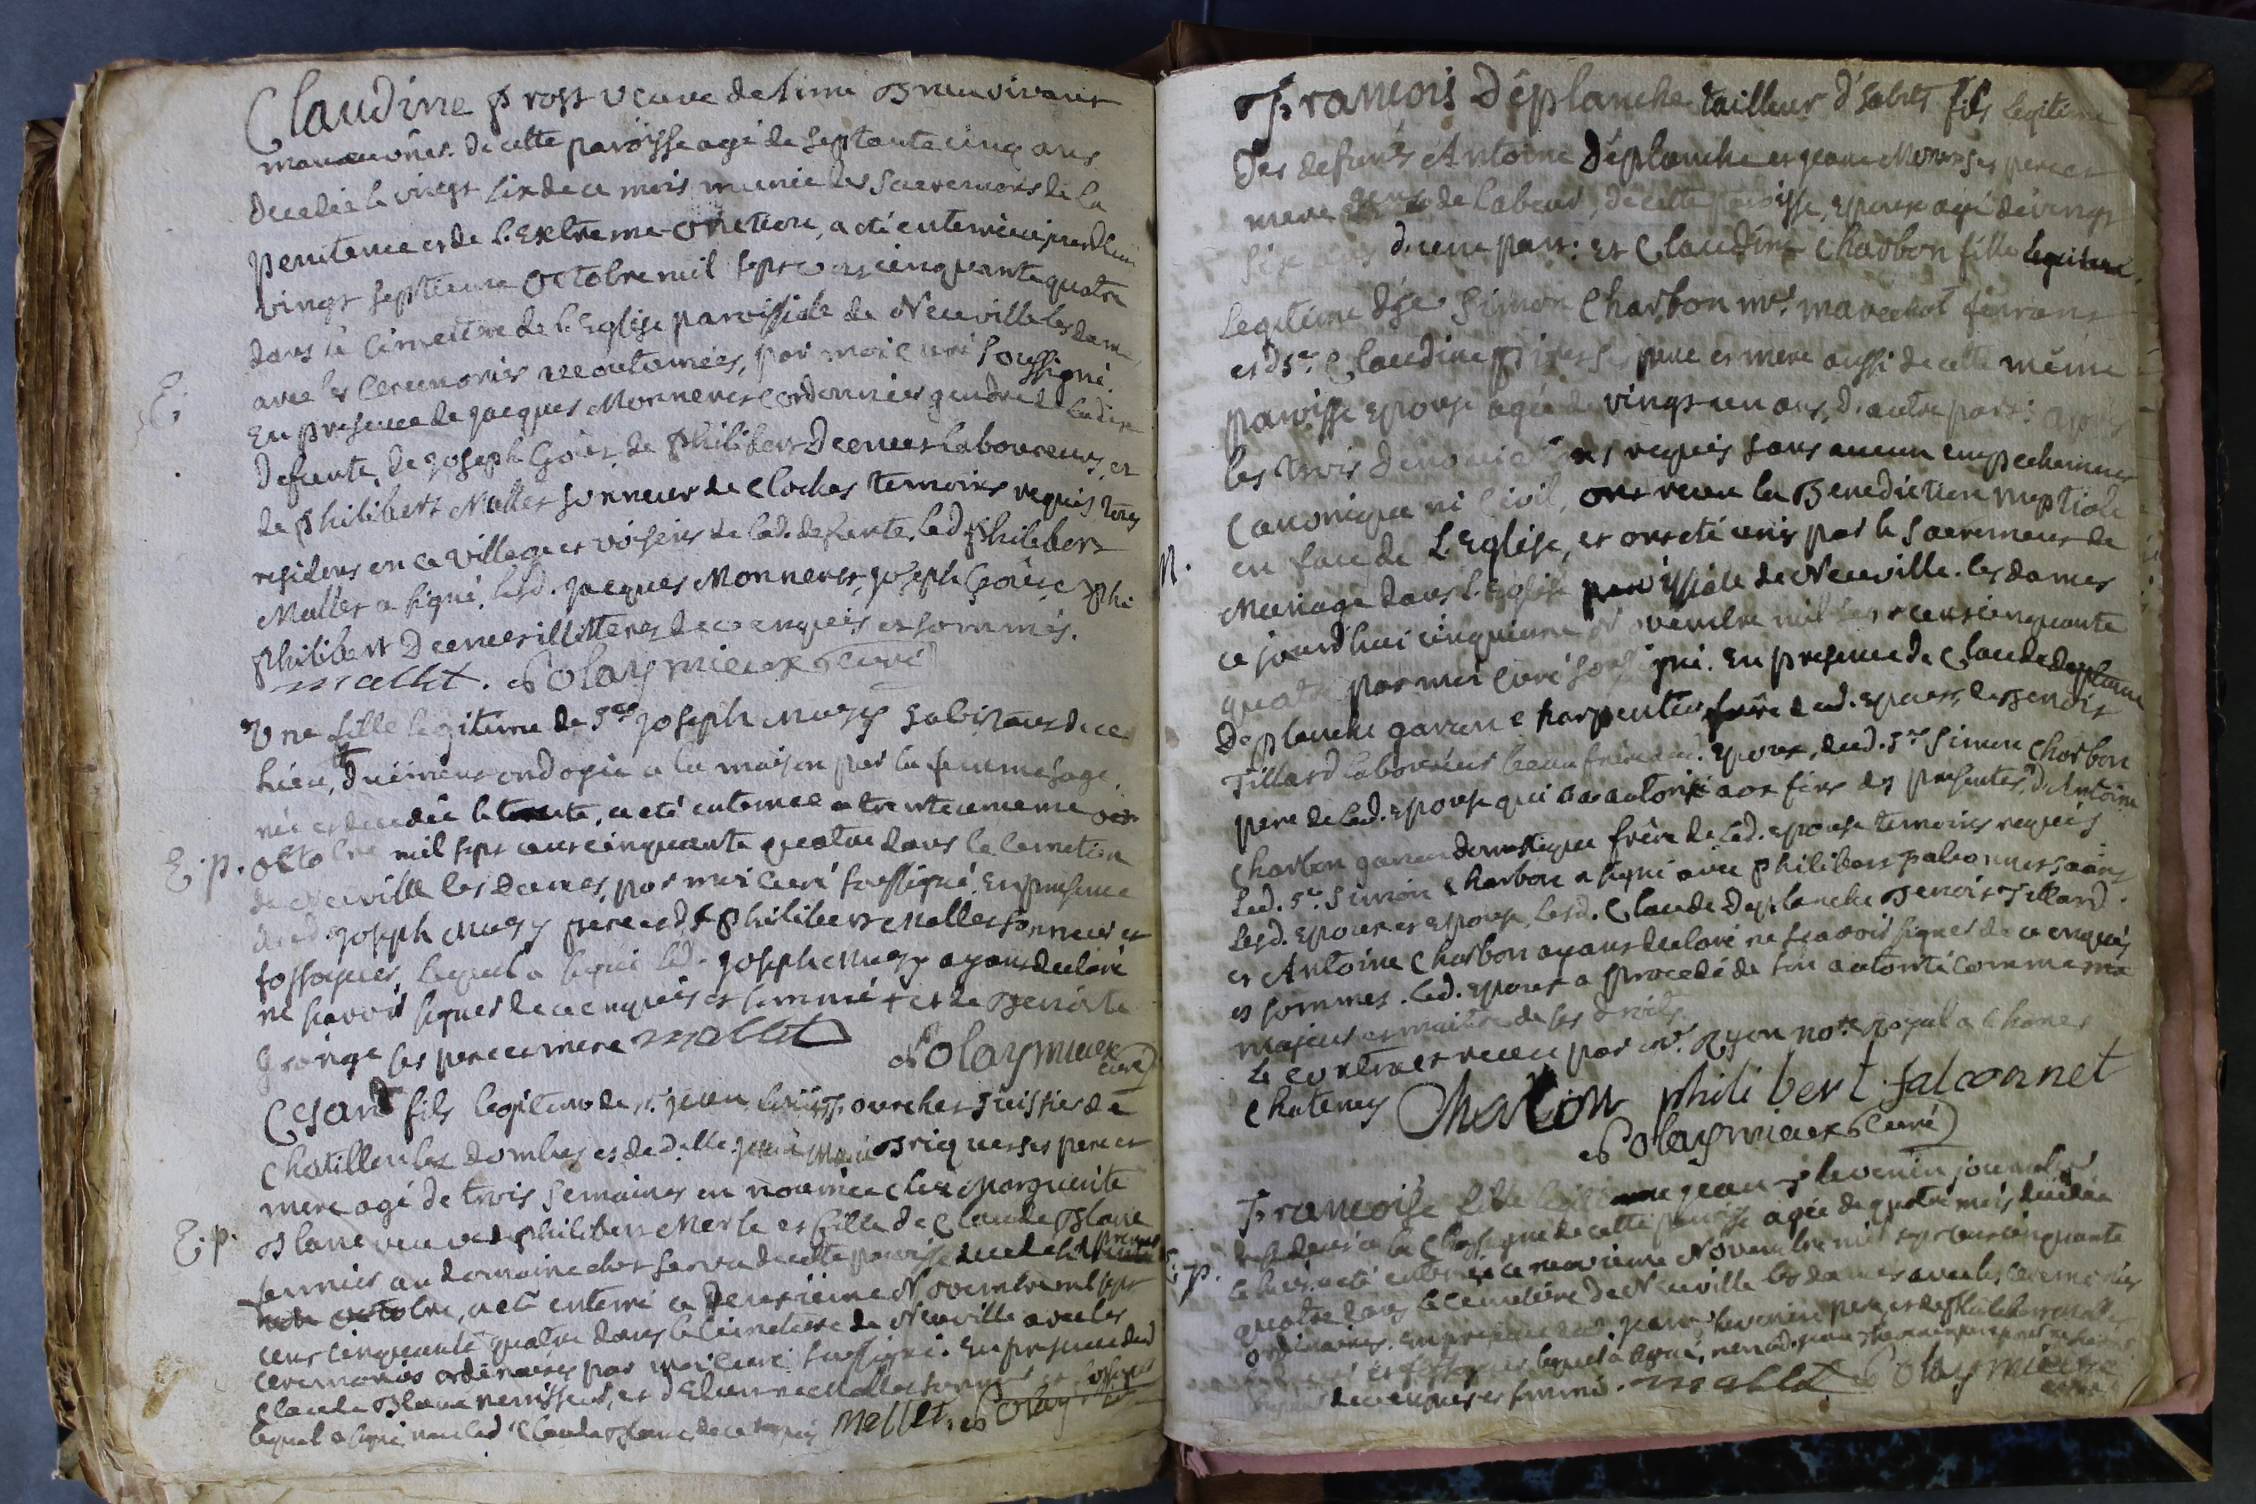 Claudine Prost veuve de Aimé Brun vivant
manœuvrier de cette paroisse agé de septante cinq ans
decedée le vingt six de ce mois munie des Sacremens de la
penitence et de L'Extreme-onction, a eté enterrée ce jourdhui
vingt septieme octobre mil sept cens cinquante quatre
dans le Cimettere de l'Eglise paroissiale de Neuville les dames
avec les Ceremonies accoutumées, par moi curé soussigné.
E.
En presence de jacques Monneret cordonnier gendre de ladite
defunte, de joseph Goin, de philibert laboureurs, et
de philibert Mallet sonneur de cloches temoins requis tous
residens en ce village et voisins de lad. defunte. led philibert
Mallet a signé, lesd. jacques Monneret, joseph phi
philibert illitteres de ce enquis et sommés.
mallet. Polaymieux curé
Une fille legitime de Sr joseph Mugy habitant de ce
lieu, duëment ondoyée a la maison par la femme sage,
née et decedée le trente, a eté enterree a trente unieme oct
E. p. octobre mil sept cens cinquante quatre dans le Cimetiere
de Neuville les Dames, par moi curé soussigné. En presence
dud. joseph Mugy pere et de philibert Mallet sonneur et
fossoyeur, lequel a signé led. joseph Mugy ayant declaré
ne sçavoir signer de ce enquis et sommé + et de Benoite
Grange ses pere et mere mallet
Polaymieux
curé
Cesard fils legitime de sr. jean huissier de
Chatillon les dombes et de dlle Briquet ses pere et
mere agé de trois semaines en nourrice chez Marguerite
E. p. Blanc veuve de philibert Merle et fille de Claude Blanc
premier
fermier au domaine de cette paroisse decedé le
octobre, a eté enterré ce deuxiéme Novembre mil sept
cens cinquante quatre dans le Cimetiere de Neuville avec les
ceremonies ordinaires par moi curé soussigné. En presence dud
Claude Blanc et d'Etienne Mallet sonneur et fossoyeur
lequel a signé, non led. Claude Blanc, de ce enquis Mallet. Polaymieux
François Déplanche tailleur d'habits fils legitime
Des defunts Antoine Déplanche et jeane ses pere et
mere de Labeur, de cette paroisse, epoux agé de vingt
six ans d'une part: Et Claudine Charbon fille legitime
Legitime de Sr Simon Charbon me. marechal ferrant
et de Claudine ses pere et mere aussi de cette même
paroisse epouse agée de vingt un ans, d'autre part: après
les trois denonciations requis sans aucun empechement
Canonique ni Civil, ont receu la Benediction nuptiale
en face de L'Eglise, et ont eté unis par le Sacrement de
M.
Mariage dans l'Eglise paroissiale de Neuville les dames
ce jourd'hui cinquieme novembre mil sept cens cinquante
quatre par moi curé soussigné. En presence de Claude deplanche
Deplanche garcon charpentier frère dud. Epoux, de Benoit
Tillard laboureur beau frère dud. Epoux, dud. Sr Simon Charbon
pere de lad. Epouse qui l'a autorisé aux fins des presentes, d'Antoine
Charbon garcon domestique frère de lad. epouse temoins requis
Led. Sr Simon Charbon a signé avec philibert
Lesd. Epoux et epouse, lesd. Claude Deplanche Benoit Tillard
et Antoine Charbon ayans declaré ne sçavoir signer de ce enquis
et sommés. Led. Epoux a procedé de son autorité comme ma
majeur et maitre de ses droits.
Le contract receu par me. Ryon note royal a
Chateney Charbon philibert falconnet
Polaymieux Curé
Françoise fille jean Thevenin journalier
de cette paroisse agée de quatre mois decedée
E. p.
le hier a eté enterrée ce neuvieme Novembre mil sept cens cinquante
quatre dans le Cimetiere de Neuville les dames avec les ceremonies
ordinaires. En presence dud. jean Thevenin pere, et de philibert mallet
et fossoyeur lequel a signé, non led. jean Thevenin
de ce enquis et sommé. mallet Polaymieux
curé